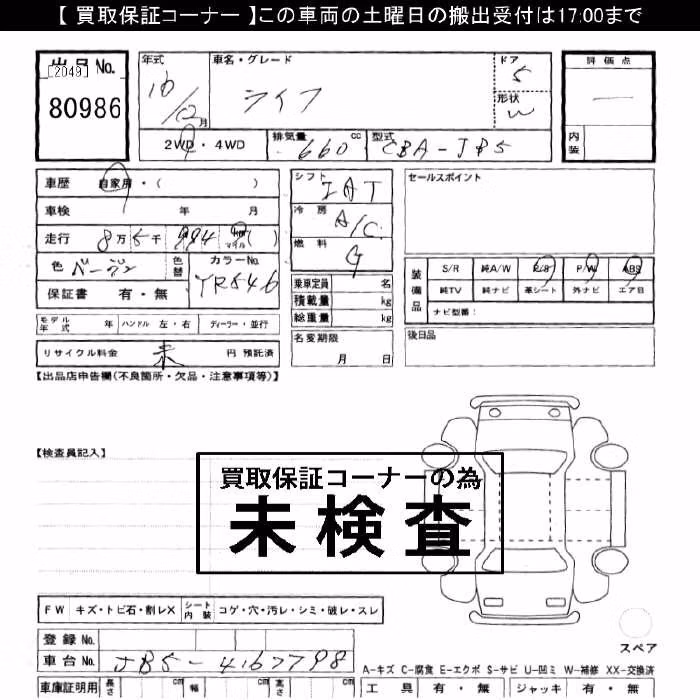 【 買取保証コーナー 】この車両の土曜日の搬出受付は17:00まで
出品No.
[2049]
80986
年式
16/12月
車名・グレード
ライフ
ドア
5
形状
W
評価点
—
内装
2WD・4WD
排気量 660 cc
型式 CBA-JB5
車歴 自家用・( )
車検 年 月
走行 8万5千994 km マイル ( )
色 ベージュ
色替
カラーNo. YR546
保証書 有・無
シフト IAT
冷房 A/C
燃料 G
乗車定員 名
積載量 kg
総重量 kg
セールスポイント
装備品
S/R 純A/W P/S P/W ABS
純TV 純ナビ 革シート 外ナビ エアB
ナビ型番:
モデル年式 年 ハンドル 左・右 ディーラー・並行
リサイクル料金 未 円 預託済
名変期限
月 日
後日品
【出品店申告欄(不良箇所・欠品・注意事項等)】
【検査員記入】
買取保証コーナーの為
未検査
FW キズ・トビ石・割レX シート内装 コゲ・穴・汚レ・シミ・破レ・スレ
登録No.
車台No. JB5-4167798
スペア
A-キズ C-腐食 E-エクボ S-サビ U-凹ミ W-補修 XX-交換済
車庫証明用 長さ cm 幅 cm 高さ cm
工具 有・無 ジャッキ 有・無